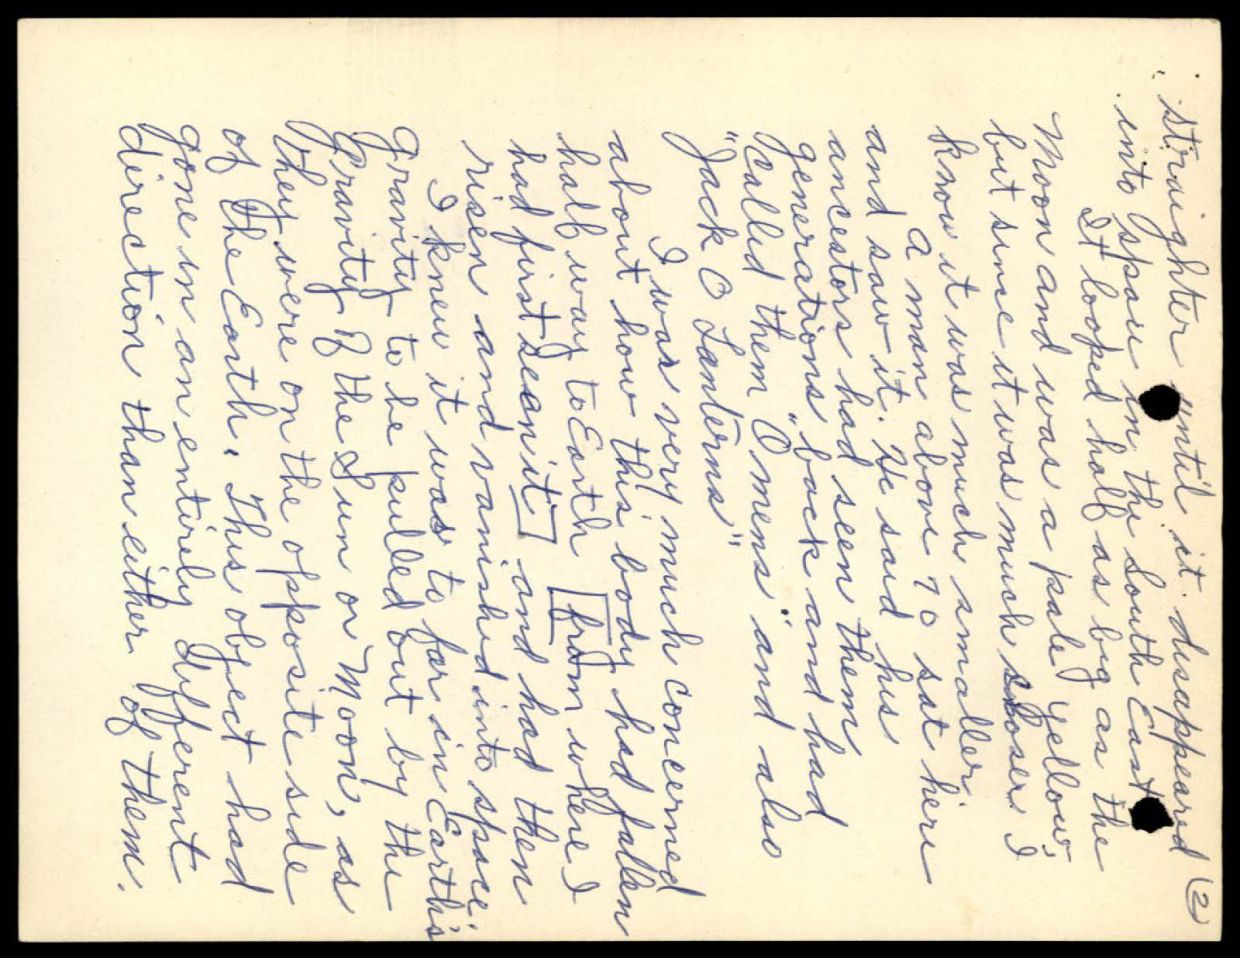 (2)
straighter until it disappeared
into space in the South East
It looped half as big as the
Moon and was a pale yellow,
but sinse it was much closer I
know it was much smaller.
A man above 70 sat here
and saw it. He said his
ancestors had seen them
generations back and had
called them "Omens" and also
"Jack O Lanterns"
I was very much concerned
about how this body had fallen
half way to Earth from where I
had first seen it and had then
risen and vanished into space.
I knew it was to far in Earth's
gravity to be pulled out by the
Gravity of the Sun or Moon, as
they were on the opposite side
of the Earth. This object had
gone in an entirely different
direction than either of them.